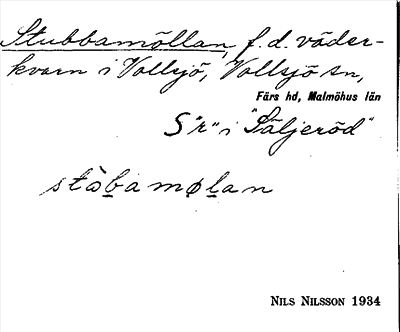 Stubbamöllan, f. d. väder-
kvarn i Vollsjö, Vollsjö sn,
Färs hd, Malmöhus län
S "r" i "Säljeröd"
stòbamølan
NILS NILSSON 1934